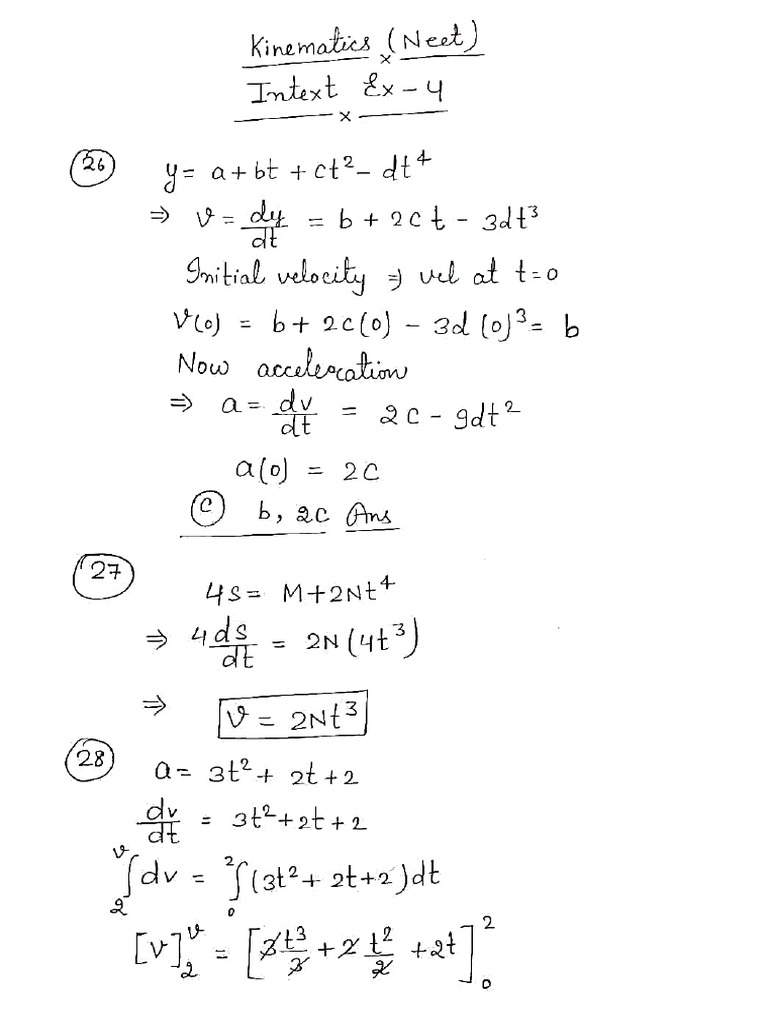 Kinematics (Neet)
×
Intext Ex - 4
×
(26) y = a + bt + ct² - dt⁴
⇒ v = dy/dt = b + 2ct - 3dt³
Initial velocity ⇒ vel at t = 0
v(0) = b + 2c(0) - 3d(0)³ = b
Now acceleration
⇒ a = dv/dt = 2c - 9dt²
a(0) = 2c
(c) b, 2c Ans
(27) 4s = M + 2Nt⁴
⇒ 4 ds/dt = 2N(4t³)
⇒ v = 2Nt³
(28) a = 3t² + 2t + 2
dv/dt = 3t² + 2t + 2
∫₂ᵛ dv = ∫₀² (3t² + 2t + 2)dt
[v]₂ᵛ = [3t³/3 + 2t²/2 + 2t]₀²